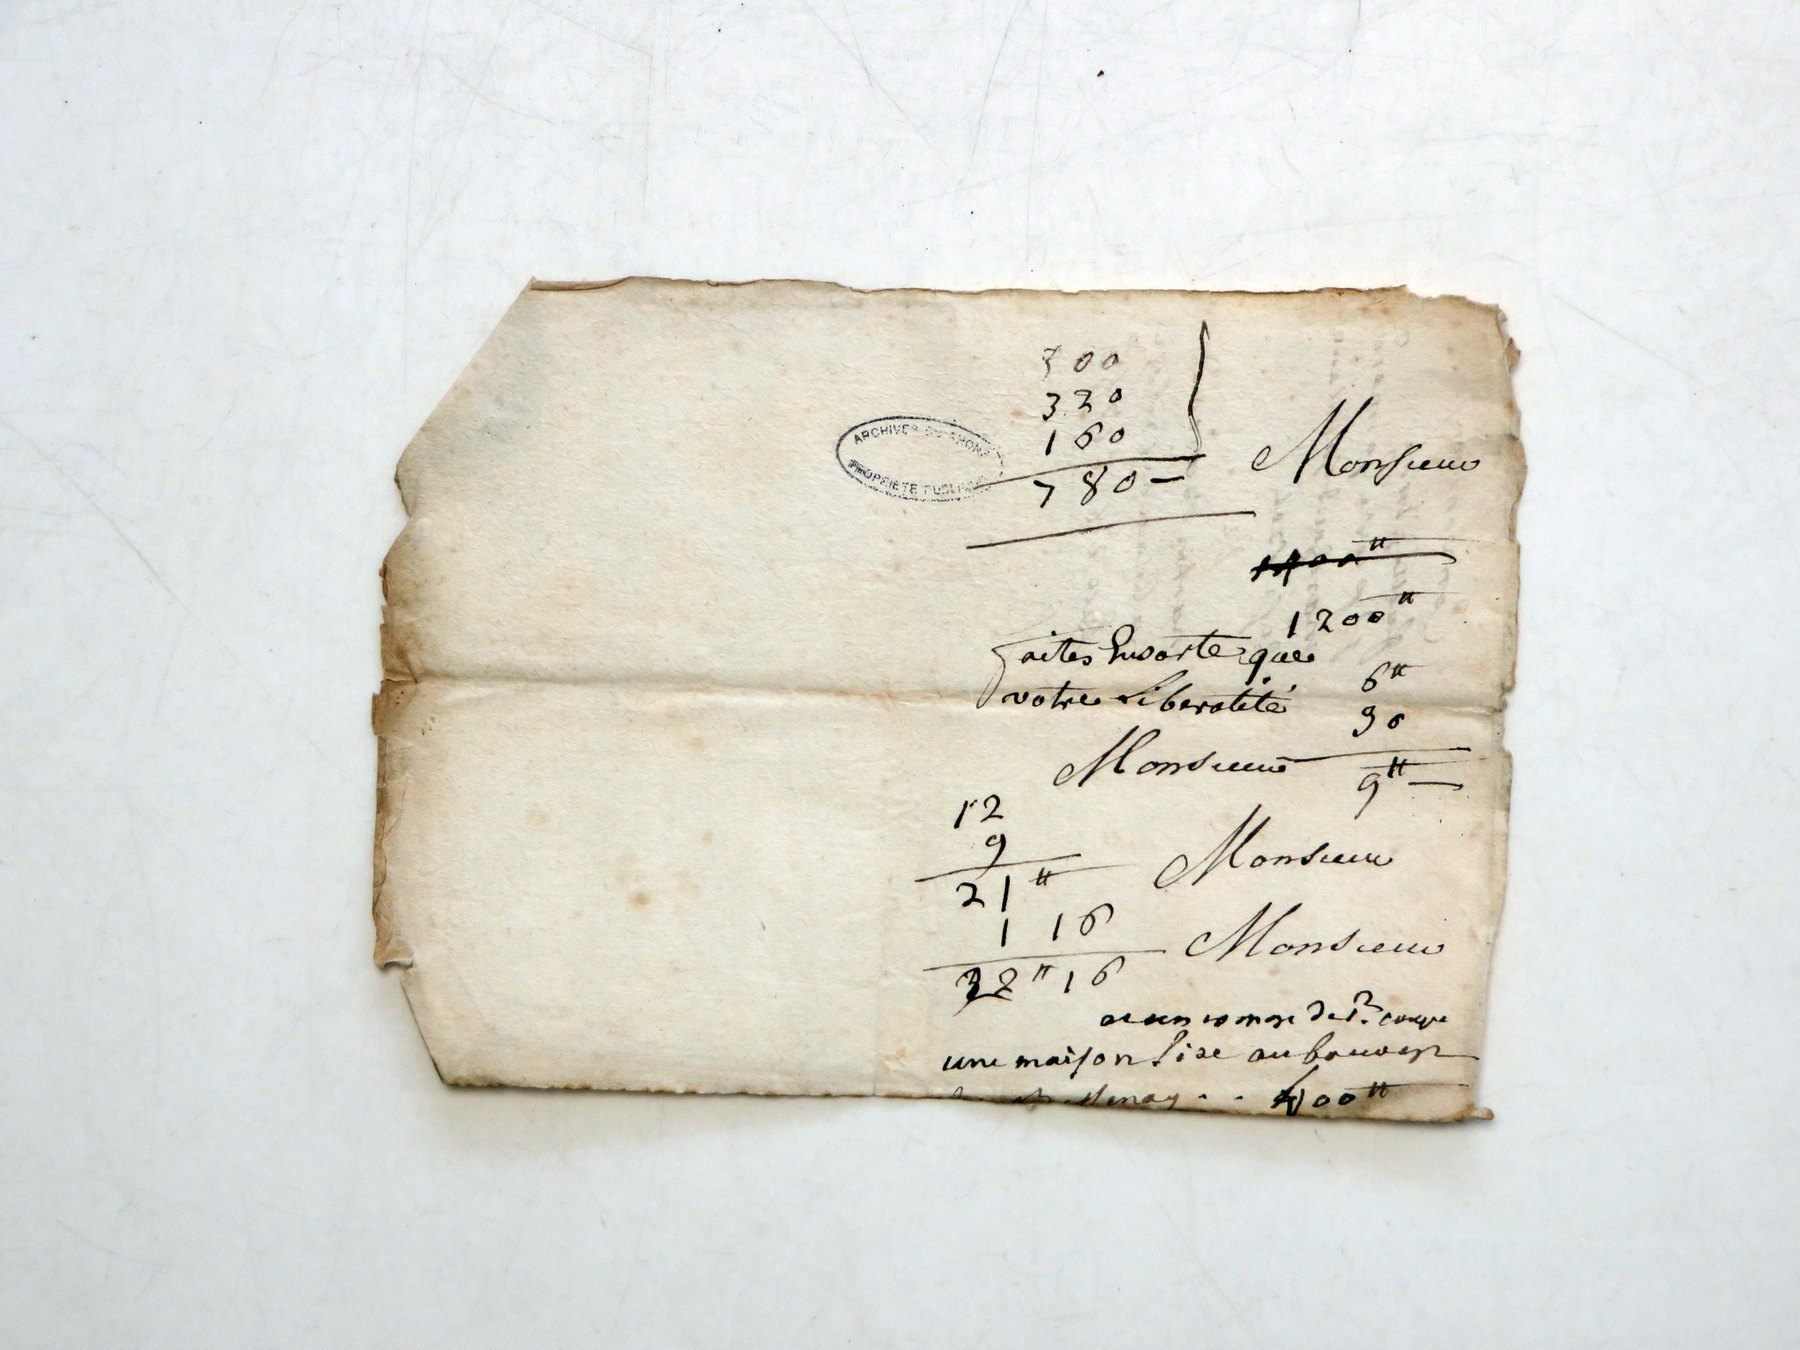 300
320
160
780
Monsieur
ARCHIVES DU RHONE
PROPRIÉTÉ PUBLIQUE
1200 ₶
faites Ensorte que
votre Liberalité
6 ₶
30
9 ₶
Monsieur
12
9
21 ₶
Monsieur
1 16
22 ₶ 16
Monsieur
une maison size au
400 ₶